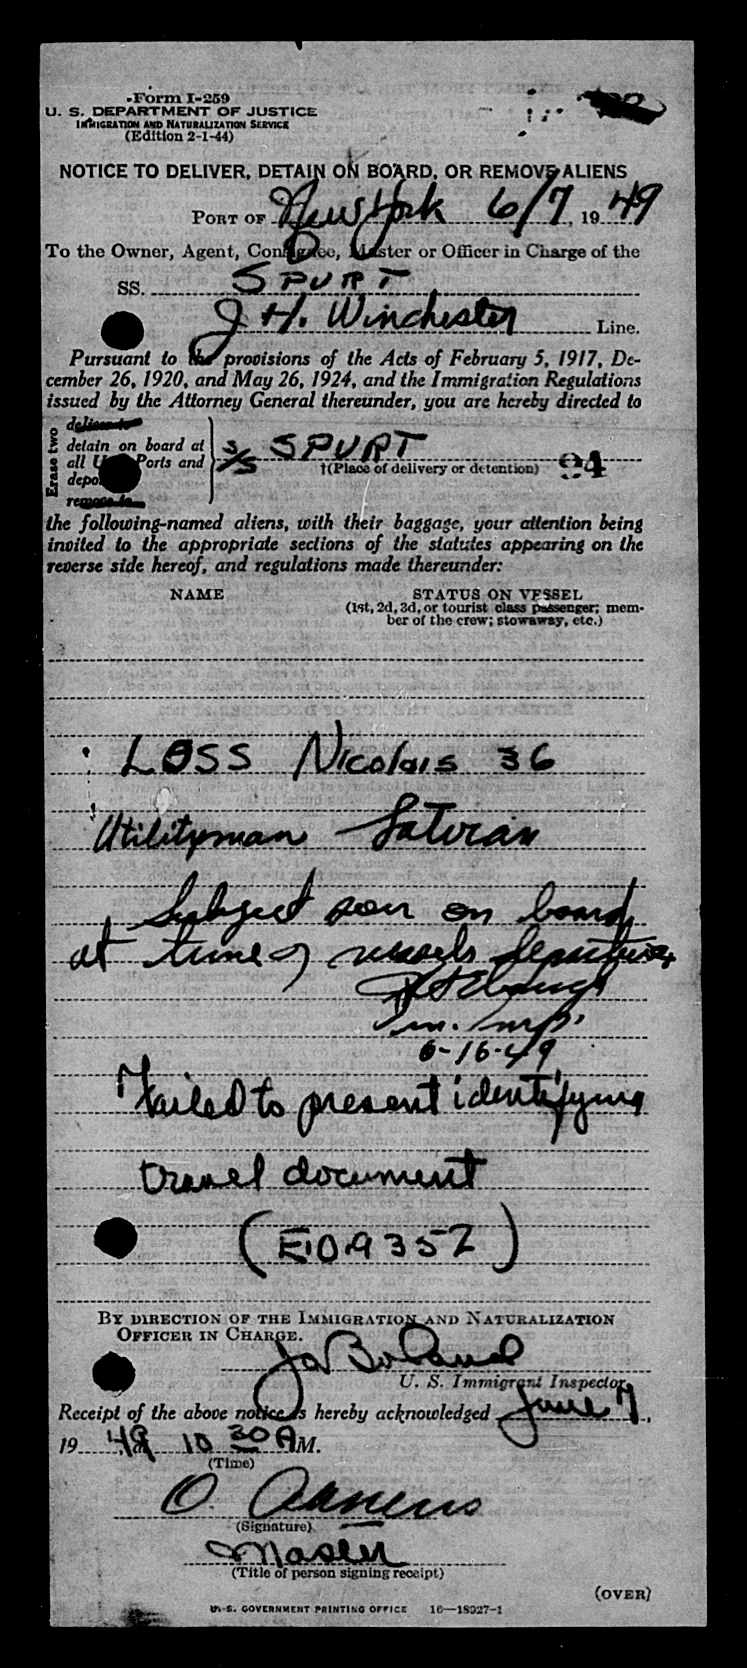 Form I-259
U. S. DEPARTMENT OF JUSTICE
IMMIGRATION AND NATURALIZATION SERVICE
(Edition 2-1-44)
NOTICE TO DELIVER, DETAIN ON BOARD, OR REMOVE ALIENS
PORT OF New York 6/7, 1949
To the Owner, Agent, Consignee, Master or Officer in Charge of the
SS. SPURT
J H. Winchester Line.
Pursuant to the provisions of the Acts of February 5, 1917, De-
cember 26, 1920, and May 26, 1924, and the Immigration Regulations
issued by the Attorney General thereunder, you are hereby directed to
Erase two
deliver to
detain on board at
all U. S. Ports and
remove to
S/S SPURT
†(Place of delivery or detention) 94
the following-named aliens, with their baggage, your attention being
invited to the appropriate sections of the statutes appearing on the
reverse side hereof, and regulations made thereunder:
NAME
STATUS ON VESSEL
(1st, 2d, 3d, or tourist class passenger; mem-
ber of the crew; stowaway, etc.)
LOSS Nicolais 36
Utilityman Latvian
Subject seen on board
at time of vessels departure
6-16-49
Failed to present identifying
travel document
BY DIRECTION OF THE IMMIGRATION AND NATURALIZATION
OFFICER IN CHARGE.
U. S. Immigrant Inspector.
Receipt of the above notice is hereby acknowledged June 7,
1949 10 30 A M.
(Time)
(Signature)
Master
(Title of person signing receipt)
(OVER)
U. S. GOVERNMENT PRINTING OFFICE 16—18927-1